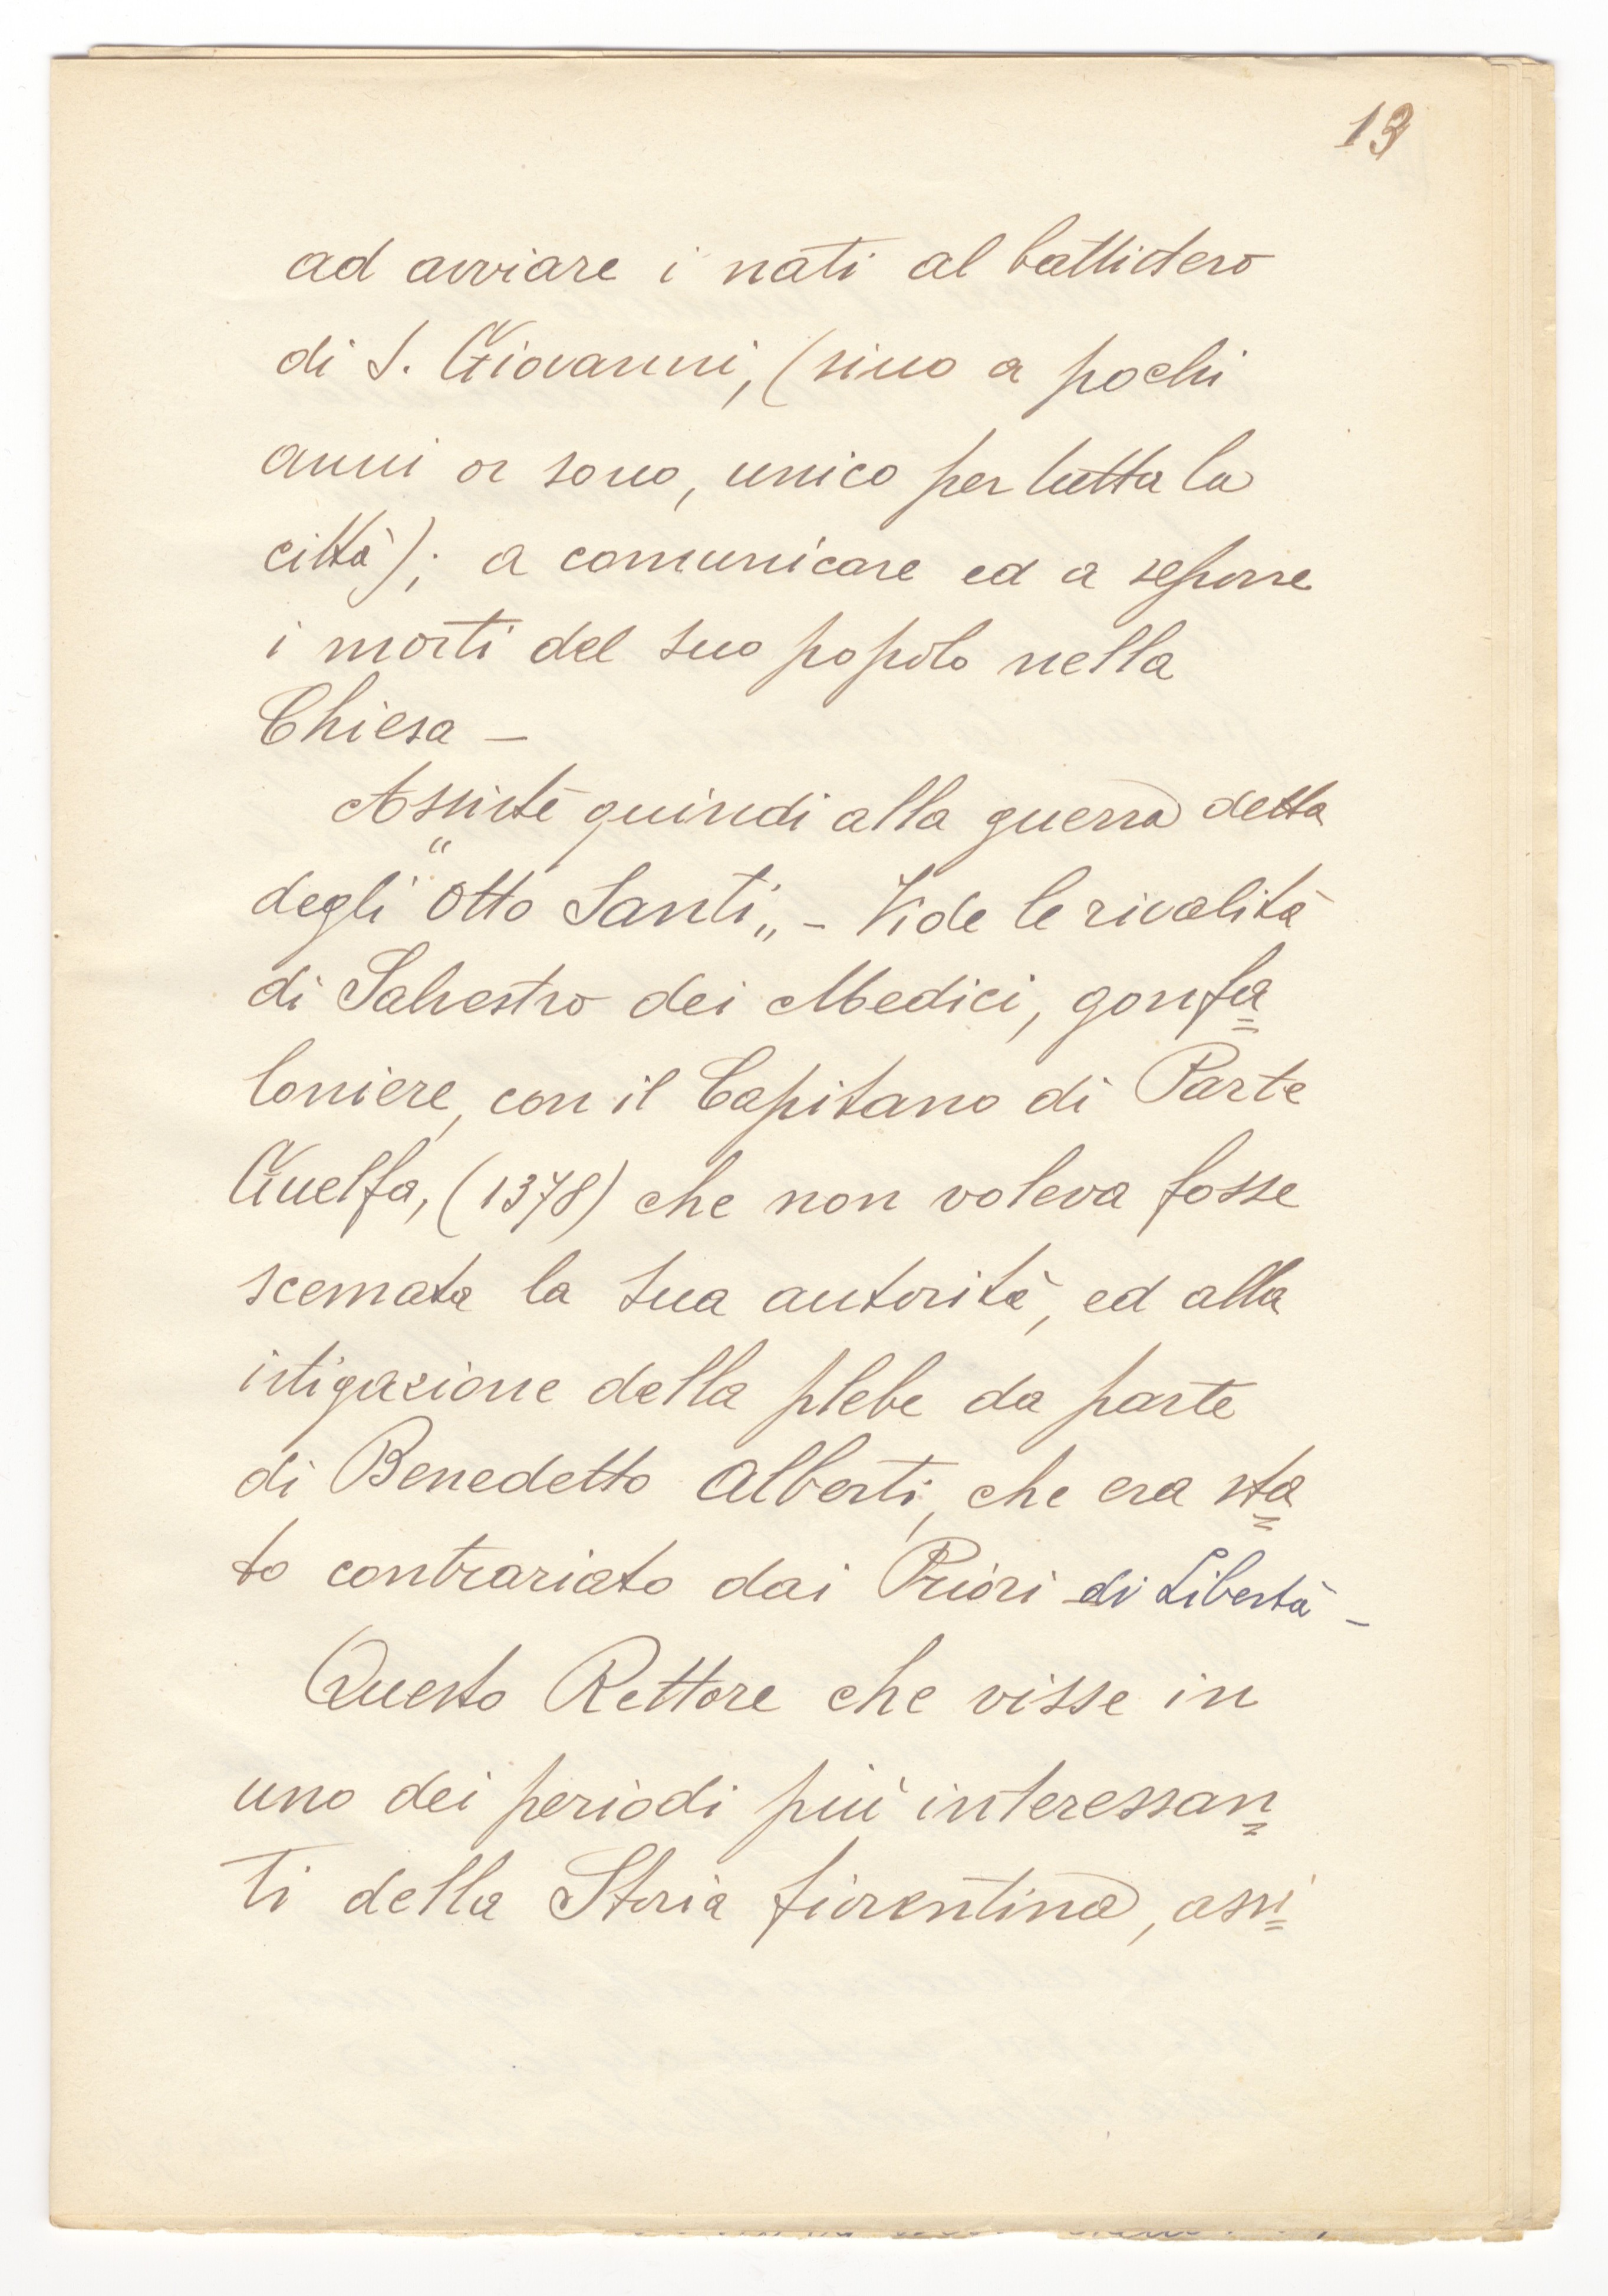 13
ad avviare i nati al battistero
di S. Giovanni, (sino a pochi
anni or sono, unico per tutta la
città); a comunicare ed a seporre
i morti del suo popolo nella
Chiesa —
Assistè quindi alla guerra detta
degli "Otto Santi„ – Vide le rivalità
di Salvestro dei Medici, gonfa=
loniere, con il Capitano di Parte
Guelfa, (1378) che non voleva fosse
scemata la sua autorità, ed alla
istigazione della plebe da parte
di Benedetto Alberti, che era sta=
to contrariato dai Priori di Libertà –
Questo Rettore che visse in
uno dei periodi più interessan=
ti della Storia fiorentina, assi=